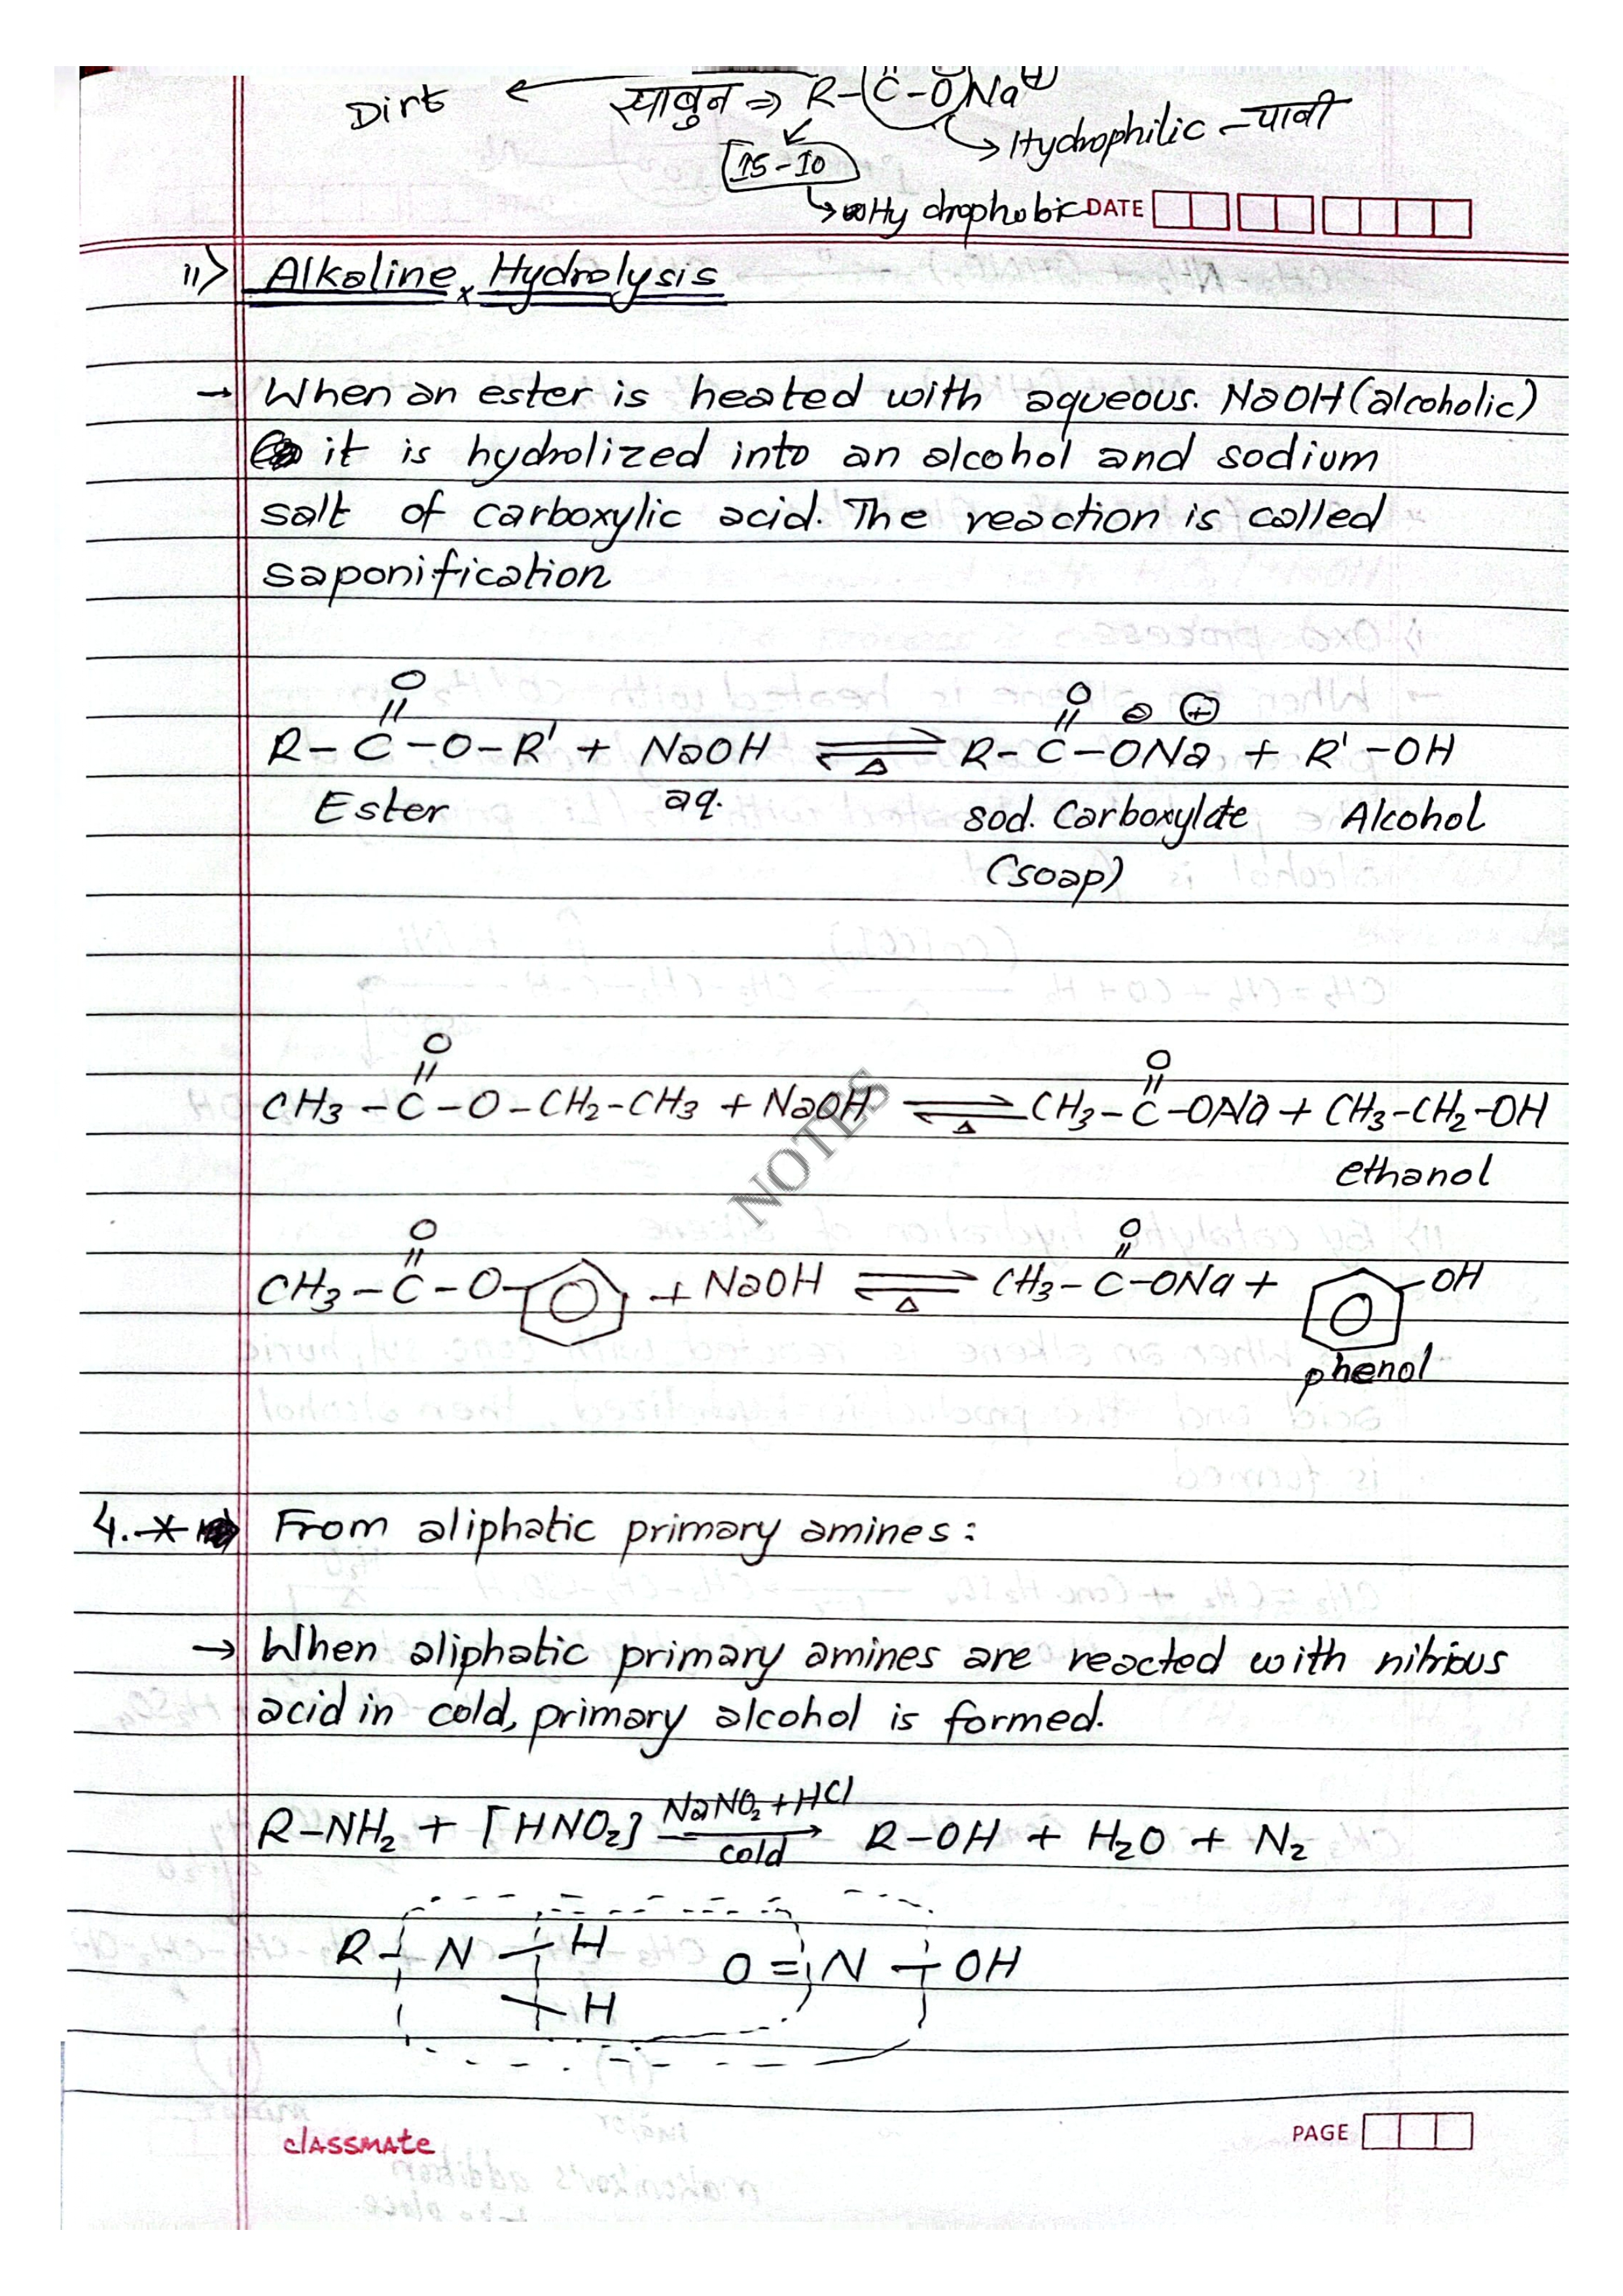 Dirt ← साबुन ⇒ R-C-ONa⊕
→ Hydrophilic - पानी
15-10
↳ Hydrophobic DATE
ii) Alkaline Hydrolysis
→ When an ester is heated with aqueous. NaOH (alcoholic)
it is hydrolized into an alcohol and sodium
salt of carboxylic acid. The reaction is called
saponification
O O ⊖ ⊕
R-C-O-R' + NaOH ⇌ R-C-ONa + R'-OH
Δ
Ester aq. sod. Carboxylate Alcohol
(soap)
O O
CH₃-C-O-CH₂-CH₃ + NaOH ⇌ CH₃-C-ONa + CH₃-CH₂-OH
Δ
ethanol
NOTES
O O
CH₃-C-O- + NaOH ⇌ CH₃-C-ONa + -OH
Δ
phenol
4.* From aliphatic primary amines:
→ When aliphatic primary amines are reacted with nitrious
acid in cold, primary alcohol is formed.
NaNO₂+HCl
R-NH₂ + [HNO₂] → R-OH + H₂O + N₂
cold
R-N-H O=N-OH
-H
classmate PAGE